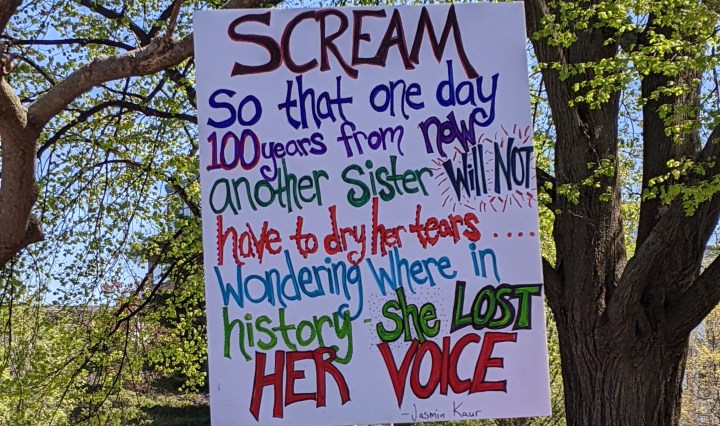 SCREAM
So that one day
100 years from now
another Sister Will NOT
have to dry her tears....
Wondering Where in
history - she LOST
HER VOICE
-Jasmin Kaur